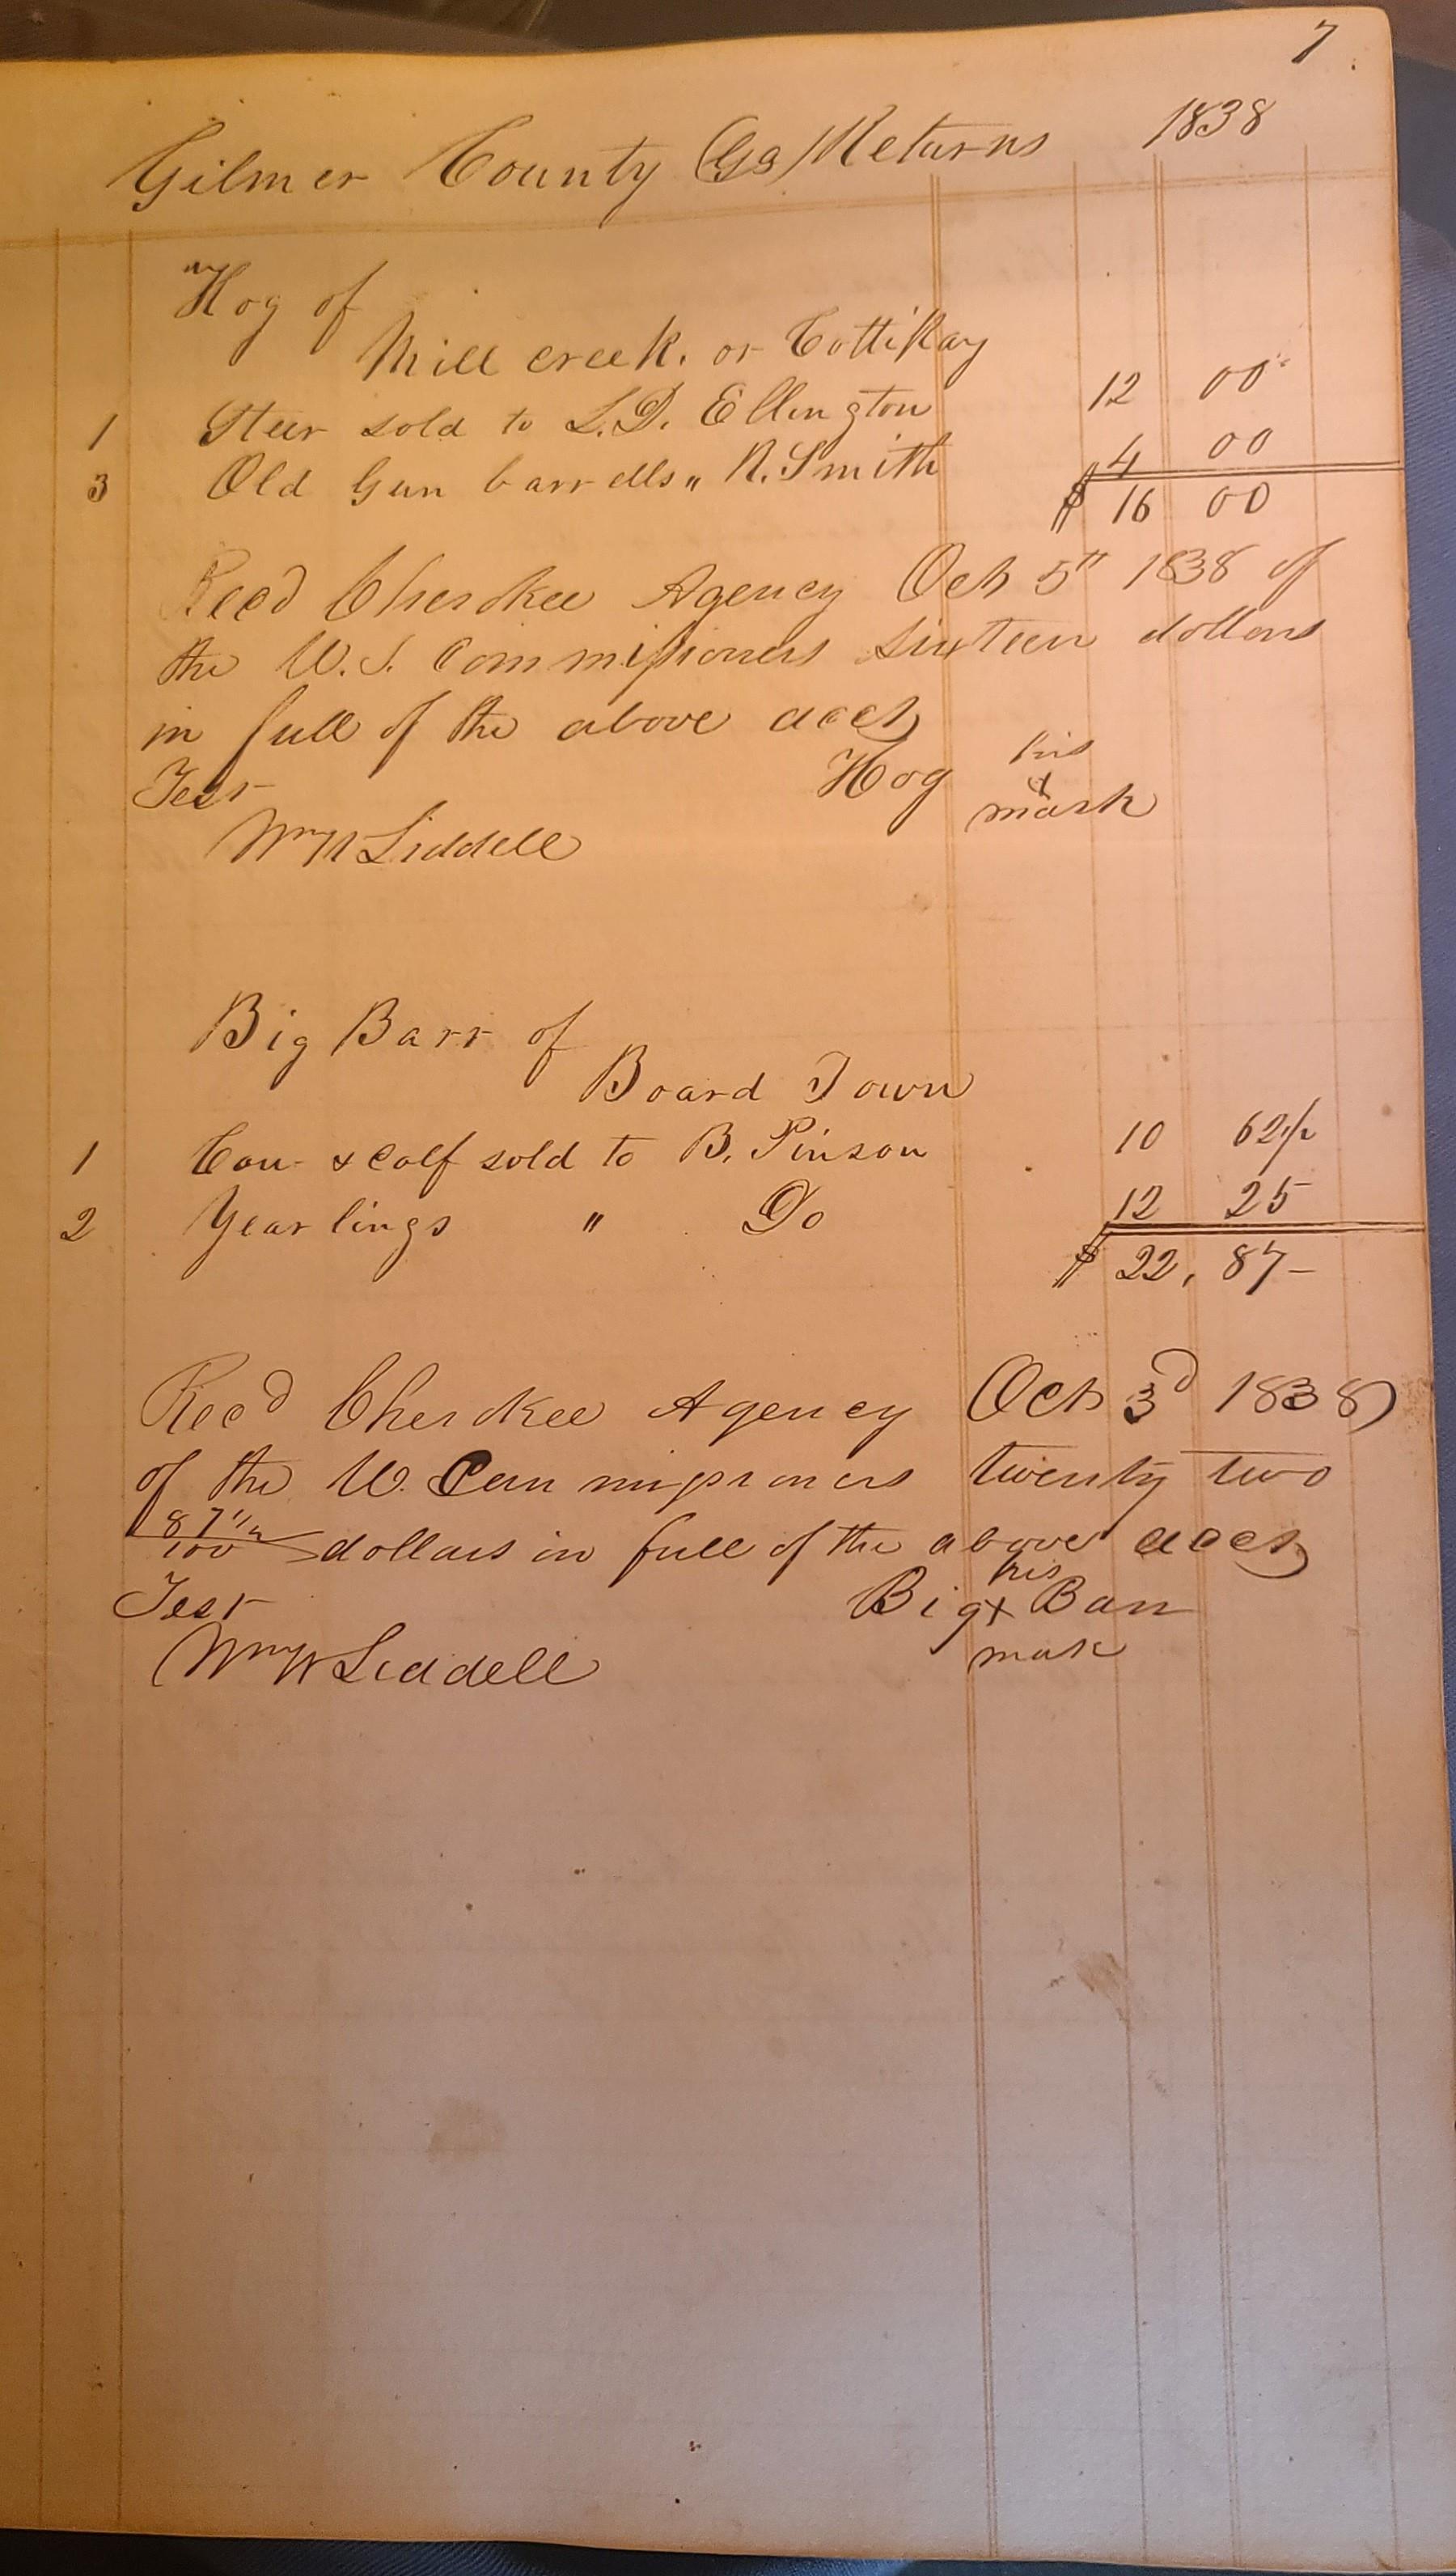 7
Gilmer County (Ga) Returns 1838
Hog of
Mill creek. or
1 Steer sold to L.D. Ellington 12 00
3 Old Gun barrells „ R. Smith 4 00
$ 16 00
Recd Cherokee Agency Oct 5th 1838 of
the U.S. Commissioners sixteen dollars
in full of the above acct
his
Test Hog x
mark
Wm Liddell
Big Barr of
Board Town
1 Cow & calf sold to B. Pinson 10 62½
2 Yearlings " Do 12 25
$ 22, 87–
Recd Cherokee Agency Oct 3d 1838
of the U. Commissioners twenty two
87½/100 dollars in full of the above acct
his
Test Big x Barr
mark
Wm Liddell